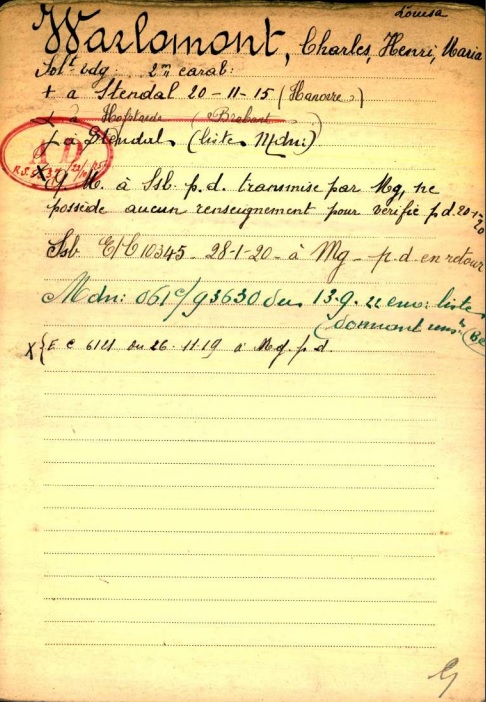 Louisa
Warlomont, Charles, Henri, Maria
Solt bdg: 2me carab:
+ à Stendal 20-11-15 (Hanovre)
+ à Hofstade (Brabant
+ à Stendal (liste Mdn:)
X G M. à Ssb. p.d. transmise par Mg, ne
possède aucun renseignement pour vérifié p.d. 20-1-20
Ssb E/C 10345 - 28-1-20 - à Mg - p.d. en retour
Mdn: 061c/93630 du 13.9.22 env: liste
(donnant
X { E C 6121 du 26-11-19 à Mg. p.d.